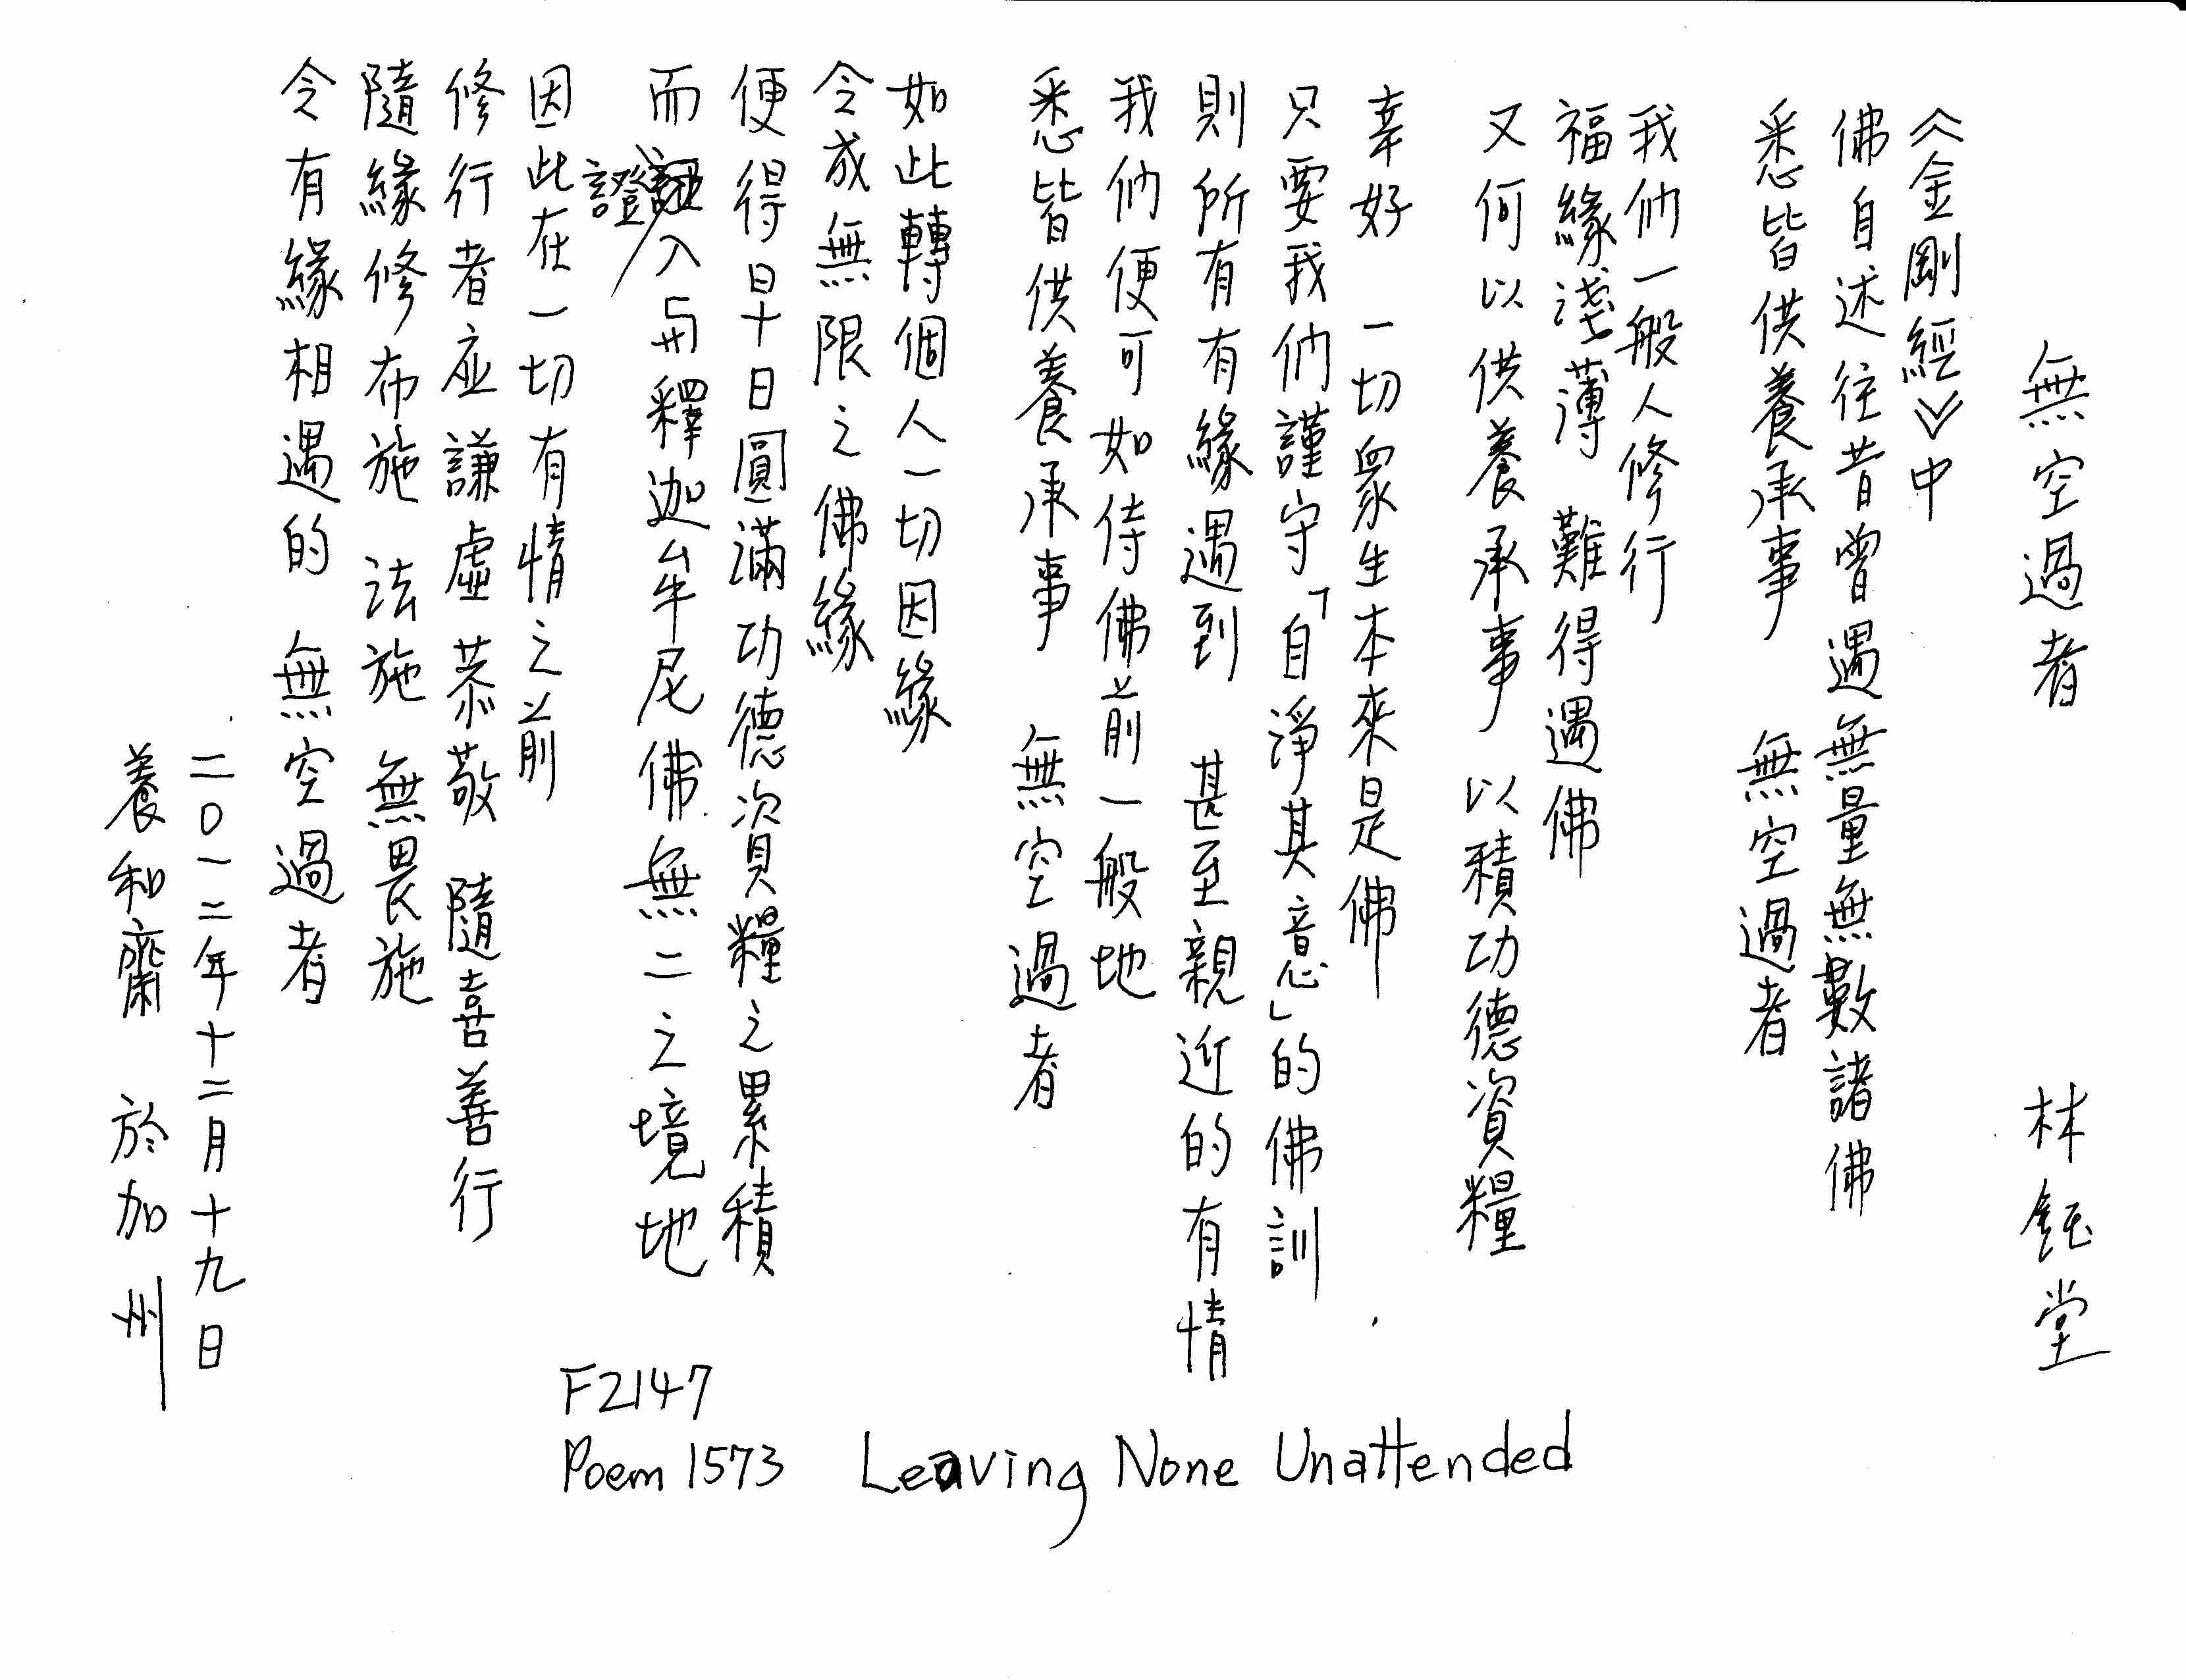 無空過者　林鈺堂
《金剛經》中
佛自述往昔曾遇無量無數諸佛
悉皆供養承事　無空過者
我們一般人修行
福緣淺薄　難得遇佛
又何以供養承事　以積功德資糧
幸好　一切眾生本來是佛
只要我們謹守「自淨其意」的佛訓
則所有有緣遇到　甚至親近的有情
我們便可如侍佛前一般地
悉皆供養承事　無空過者
如此轉個人一切因緣
令成無限之佛緣
便得早日圓滿功德資糧之累積
而證入與釋迦牟尼佛無二之境地
因此在一切有情之前
修行者应謙虛恭敬　隨喜善行
隨緣修布施　法施　無畏施
令有緣相遇的　無空過者
二〇一二年十二月十九日
養和齋　於加州
F2147
Poem 1573　Leaving None Unattended